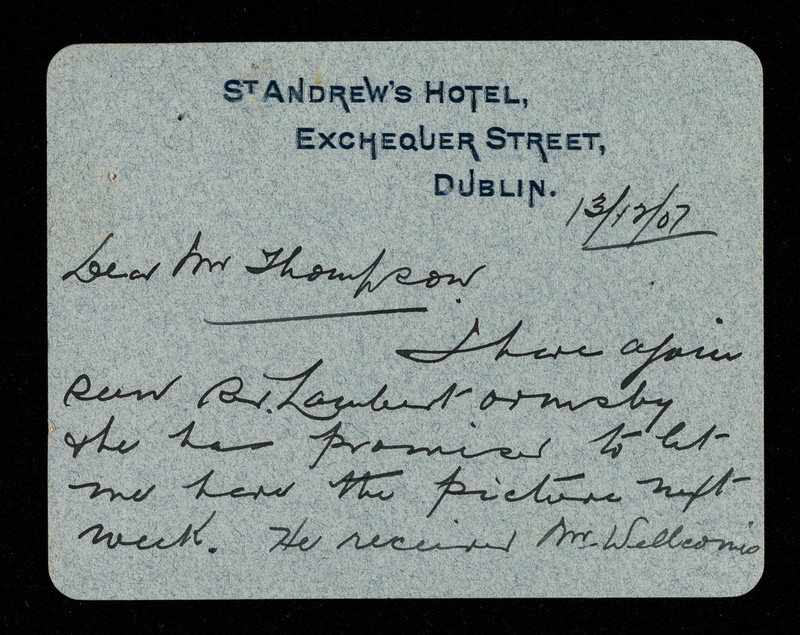 St ANDREW'S HOTEL,
EXCHEQUER STREET,
DUBLIN.
13/12/07
Dear Mr Thompson.
I have again
seen Sr. Lambert Ormsby
& he has promised to let
me have the picture next
week. He received Mr. Wellcome's